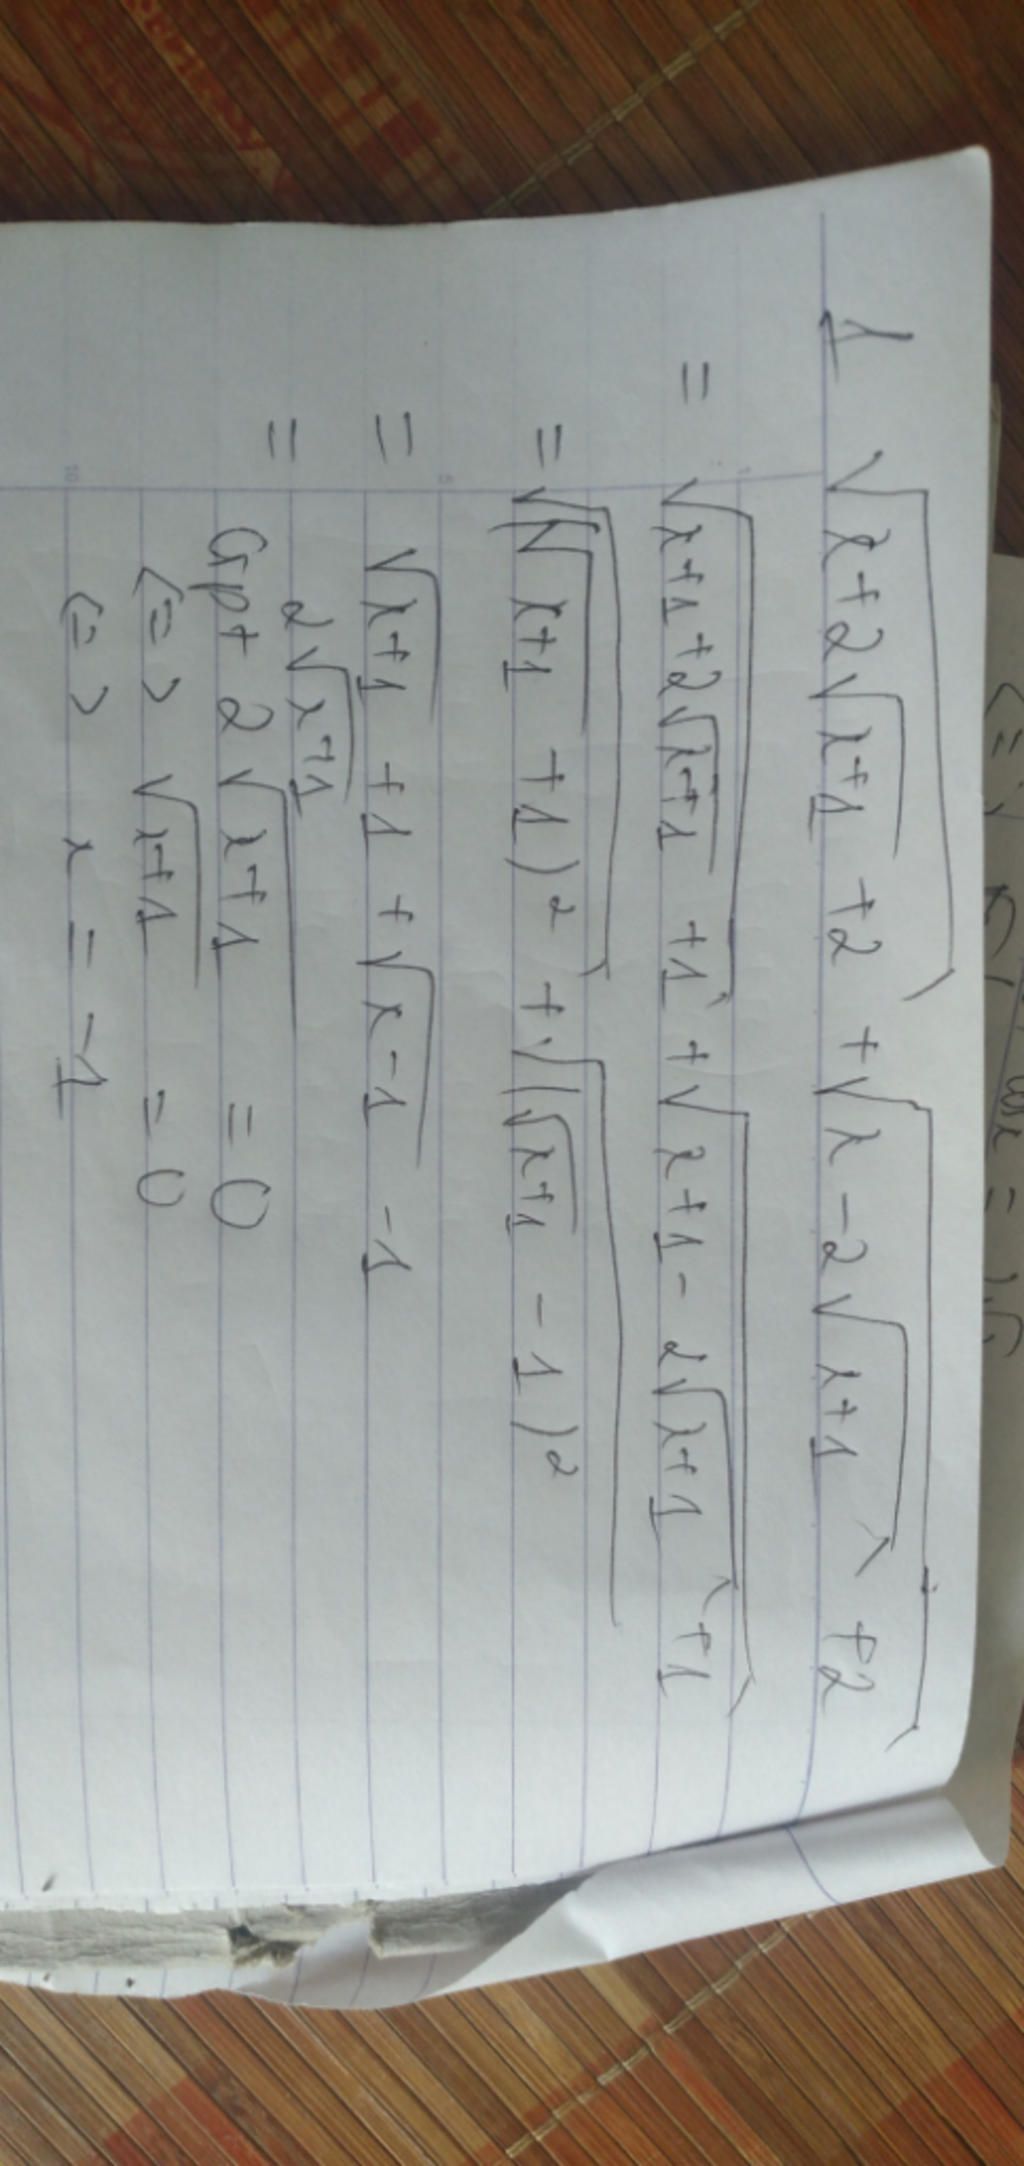 1 √(x+2√(x+1) +2) + √(x-2√(x+1) +2)
= √(x+1+2√(x+1) +1) + √(x+1-2√(x+1) +1)
= √((√(x+1) +1)²) + √((√(x+1) -1)²)
= √(x+1) +1 + √(x-1) -1
= 2√(x+1)
Gpt 2√(x+1) = 0
<=> √(x+1) = 0
<=> x = -1